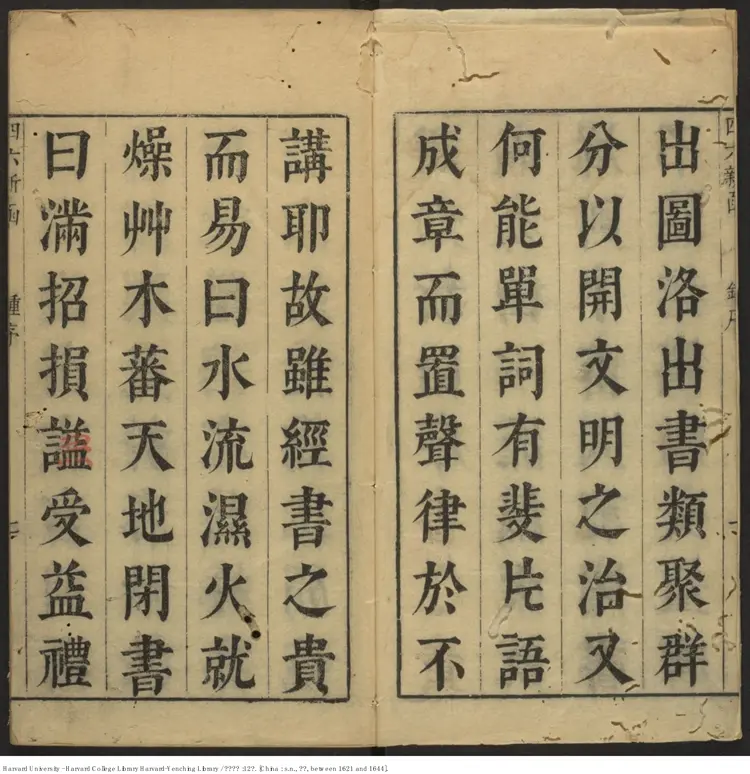 出圖洛出書類聚群
分以開文明之治又
何能單詞有斐片語
成章而置聲律於不
講耶故雖經書之貴
而易曰水流濕火就
燥艸木蕃天地閉書
曰滿招損謚受益禮
四六新函
鍾序
Harvard University - Harvard College Library Harvard-Yenching Library / ???? :12?. [China : s.n., ??, between 1621 and 1644].